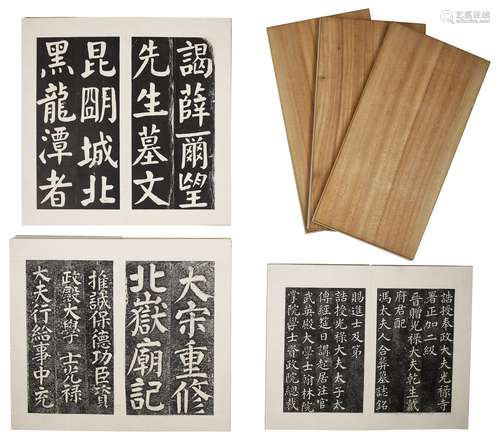 謁薛爾望
先生墓文
昆朙城北
黑龍潭者
艺狐在线
大宋重修
北嶽廟記
推誠保德功臣資
政殿大學士光祿
大夫行給事中充
誥授奉政大夫光祿寺
署正加二級
晉贈光祿大夫乾生戴
府君配
馮太夫人合葬墓誌銘
賜進士及第
誥授光祿大夫太子太
傅經筵日講起居注官
武英殿大學士翰林院
掌院學士資政院總裁